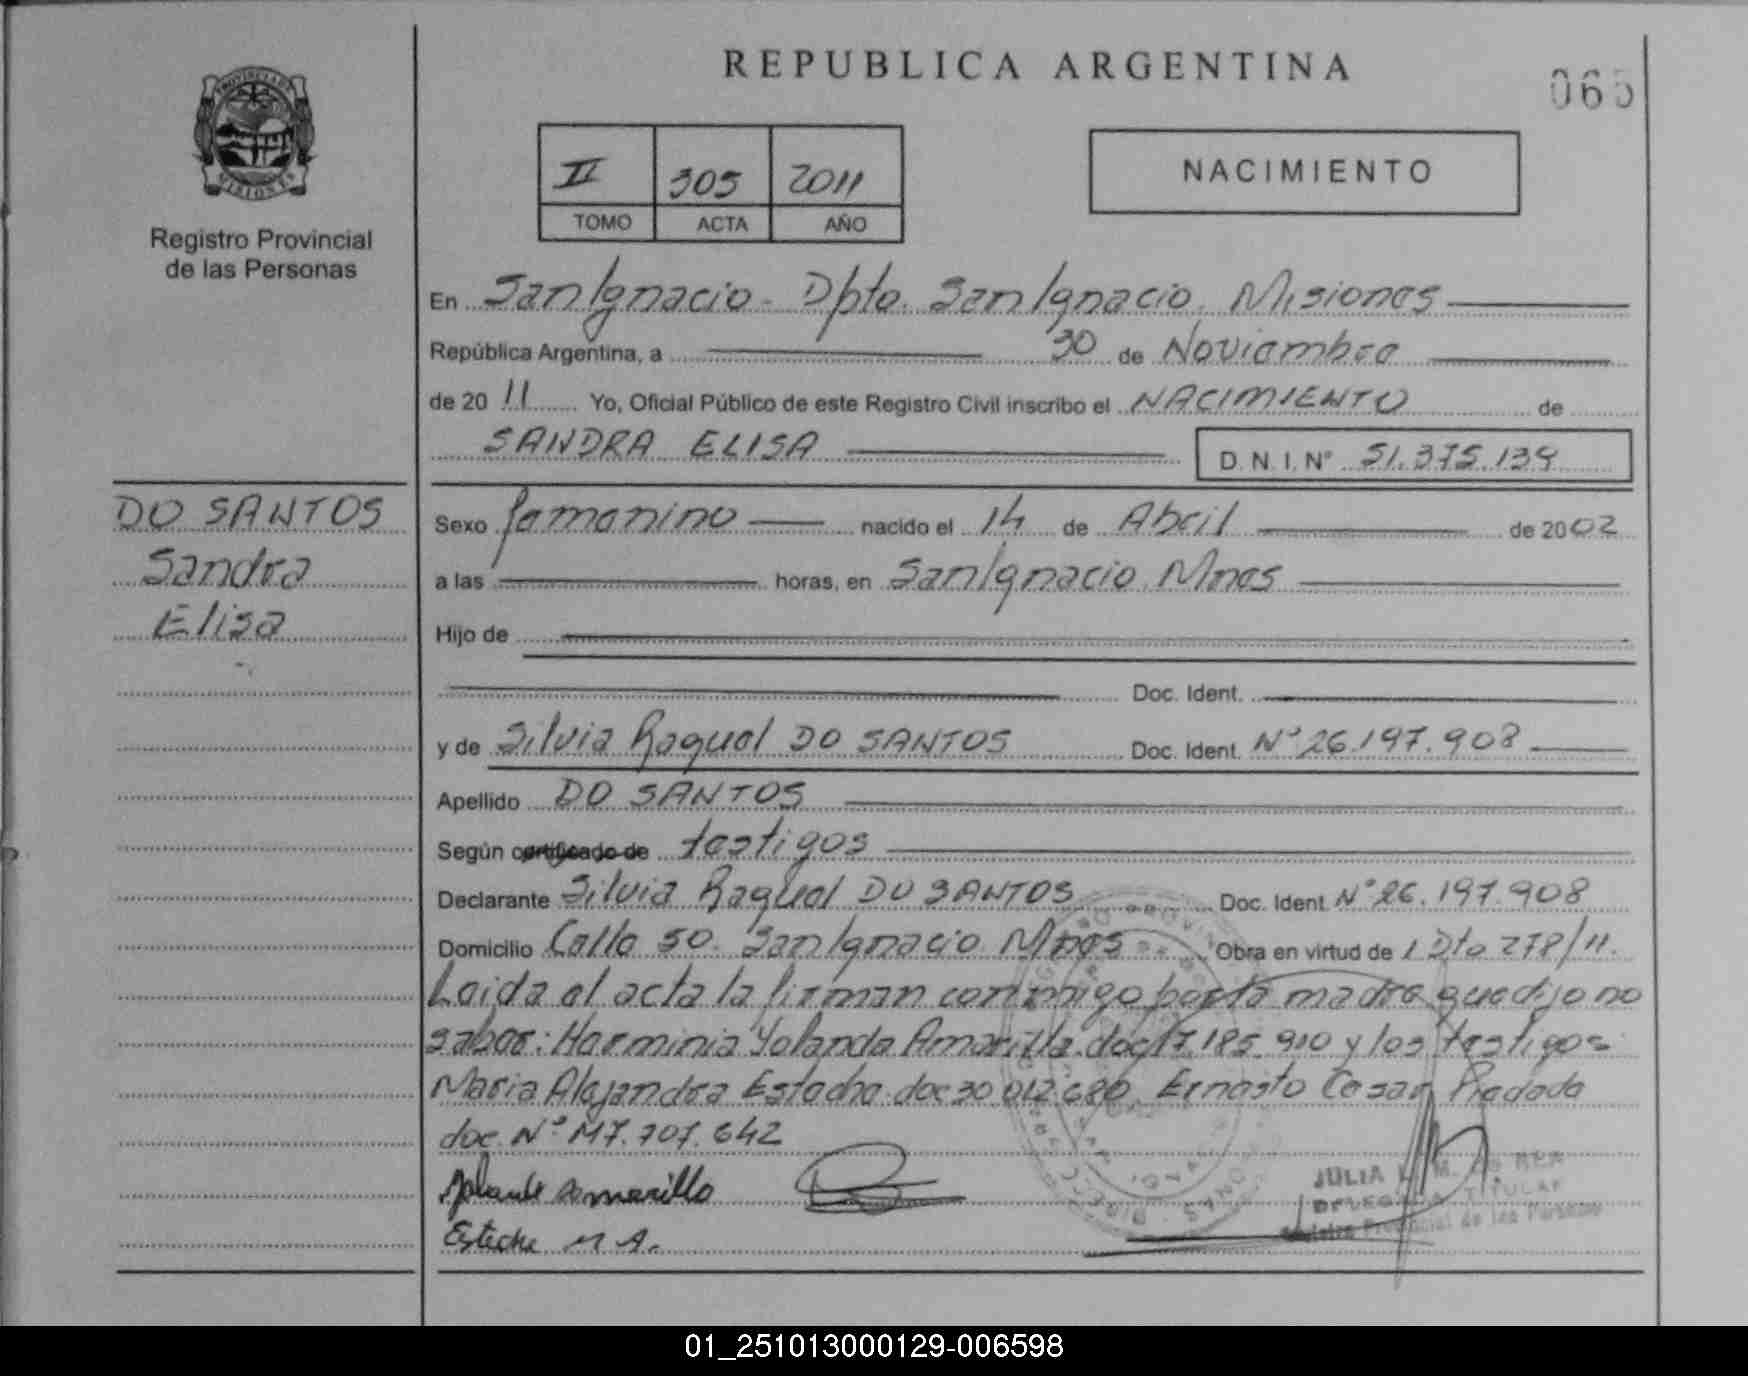 REPUBLICA ARGENTINA
065
PROVINCIA DE MISIONES
Registro Provincial
de las Personas
II 305 2011
TOMO ACTA AÑO
NACIMIENTO
En San Ignacio - Dpto. San Ignacio. Misiones
República Argentina, a 30 de Noviembre
de 2011 Yo, Oficial Público de este Registro Civil inscribo el NACIMIENTO de
SANDRA ELISA D.N.I.Nº 51.375.139
DO SANTOS
Sandra
Elisa
Sexo femenino nacido el 14 de Abril de 2002
a las horas, en San Ignacio Mnes
Hijo de
Doc. Ident.
y de Silvia Raquel DO SANTOS Doc. Ident. Nº 26.197.908
Apellido DO SANTOS
Según certificado de testigos
Declarante Silvia Raquel DO SANTOS Doc. Ident. Nº 26.197.908
Domicilio Calle 50. San Ignacio Mnes Obra en virtud de / Dto 278/11.
Leida el acta la firman conmigo por la madre que dijo no
saber: Herminia Yolanda Amarilla doc 17.185.910 y los testigos
Maria Alejandra Esteche doc 30.012.680 Ernesto Cesar
doc. Nº M7.707.642
Esteche M A.
JULIA
DELEGADA TITULAR
Registro Provincial de las Personas
01_251013000129-006598